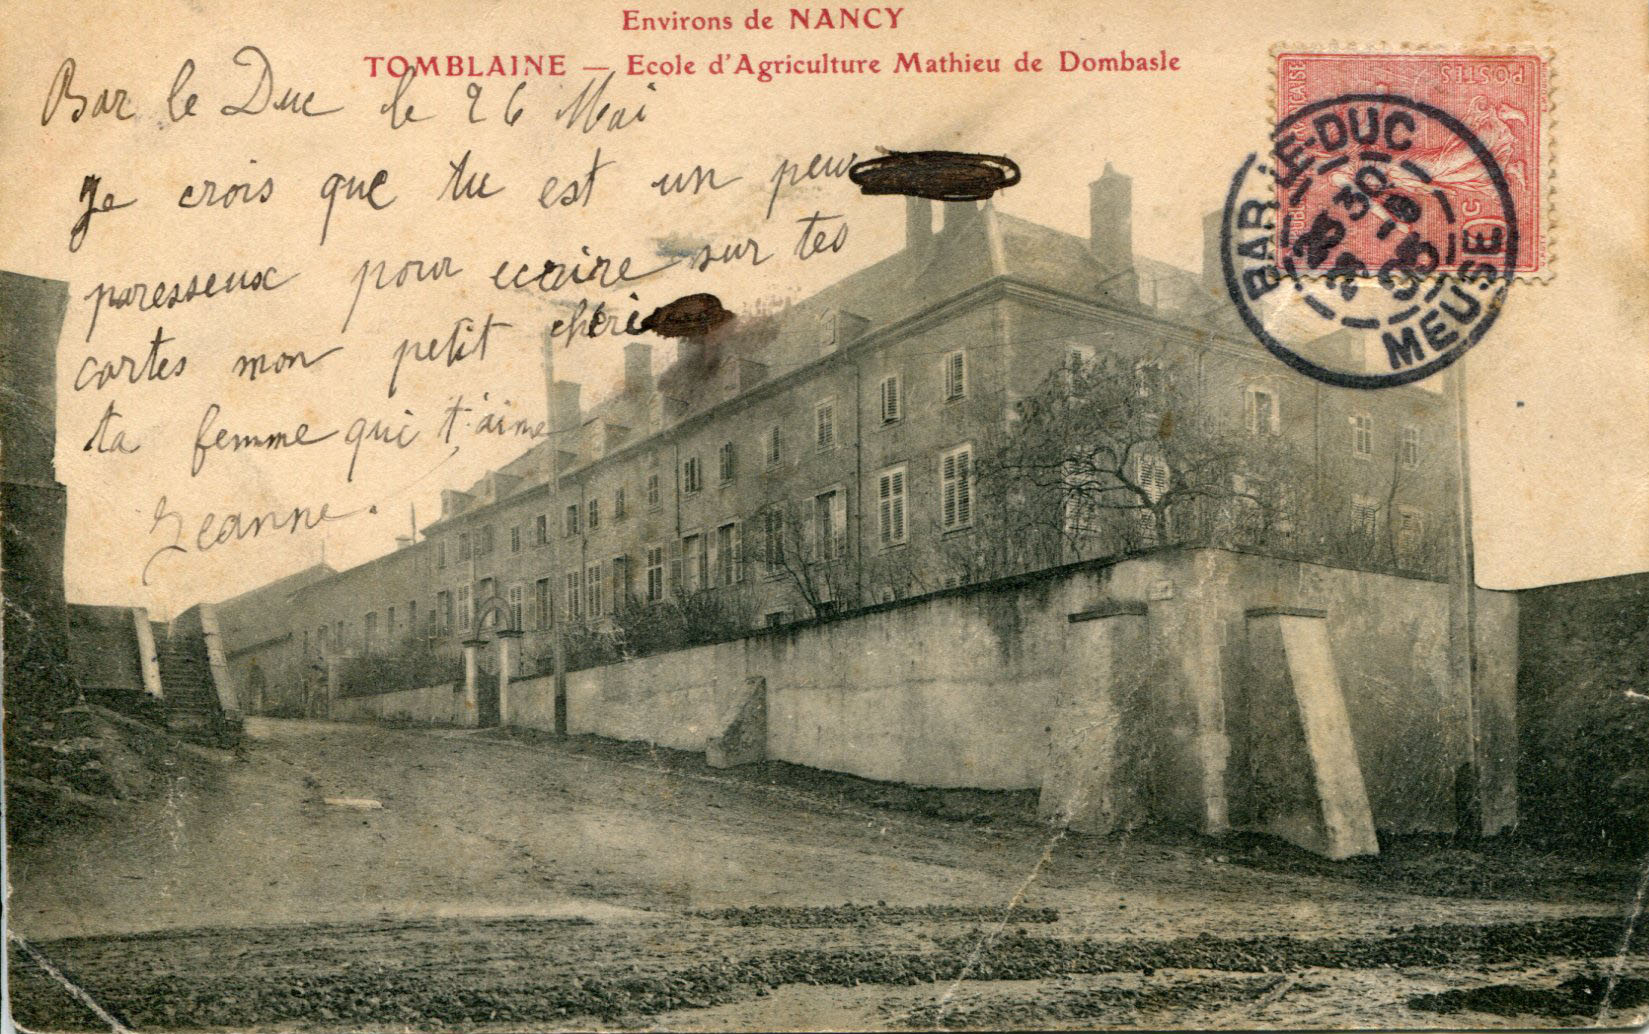 Environs de NANCY
TOMBLAINE — Ecole d'Agriculture Mathieu de Dombasle
Bar le Duc le 26 Mai
Je crois que tu est un peu
paresseux pour ecrire sur tes
cartes mon petit chéri
ta femme qui t'aime
Jeanne.
POSTES
BAR-LE-DUC
MEUSE